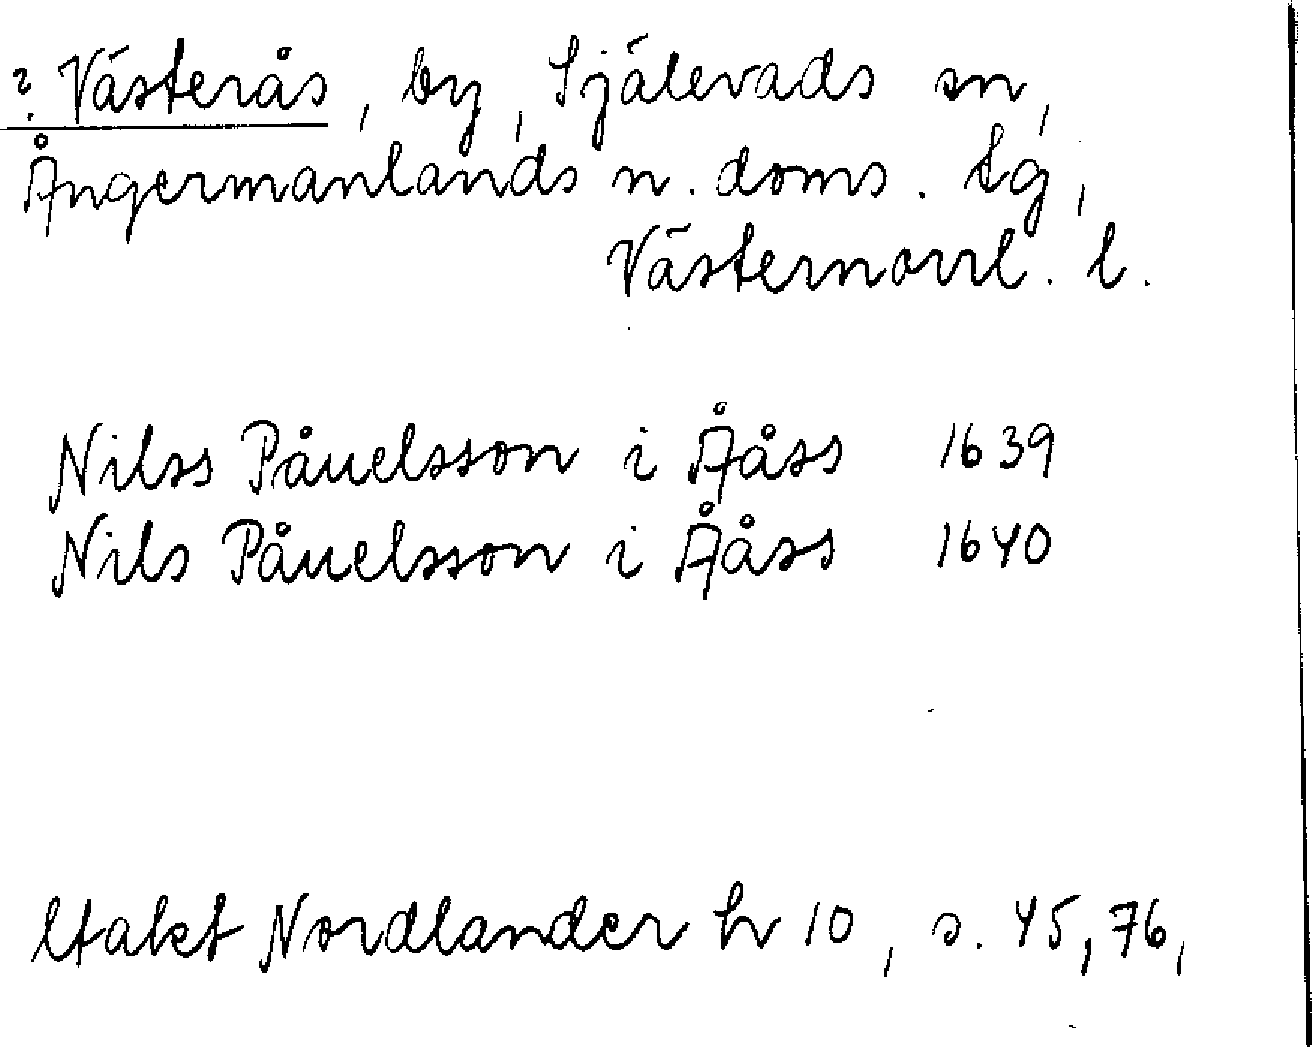 ? Västerås, by, Själevads sn,
Ångermanlands n. doms. tg,
Västernorrl. l.
Nilss Påuelsson i Ååss 1639
Nils Påuelsson i Ååss 1640
Utakt Nordlander h 10, s. 45, 76,